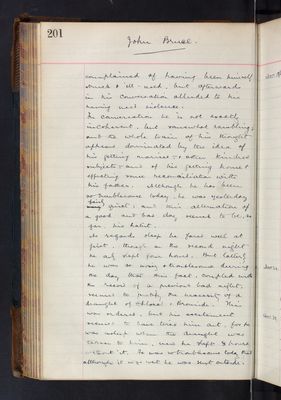 201
John Bruce.
complained of having been himself
struck & ill-used, but afterwards
in his conversation alluded to his
having used violence.
In conversation he is not exactly
incoherent, but somewhat rambling,
and the whole train of his thought
appears dominated by the idea of
his getting married, & other kindred
subjects, and of his getting home &
effecting some reconciliation with
his father. Although he has been
so troublesome today, he was yesterday
fairly quiet, and this alternation of
a good and bad day, seemed to be, so
far, his habit.
As regards sleep he fared well at
first, though on the second night
he only slept four hours. But lately
he was so noisy & troublesome during
the day that this fact, coupled with
the record of a previous bad night,
seemed to justify the necessity of a
draught of Chloral & Bromide. This
was ordered, but his excitement
seemed to have tired him out, for he
was asleep when the draught was
taken to him, and he slept hours
without it. He was not troublesome today
although it was wet he was sent outside.